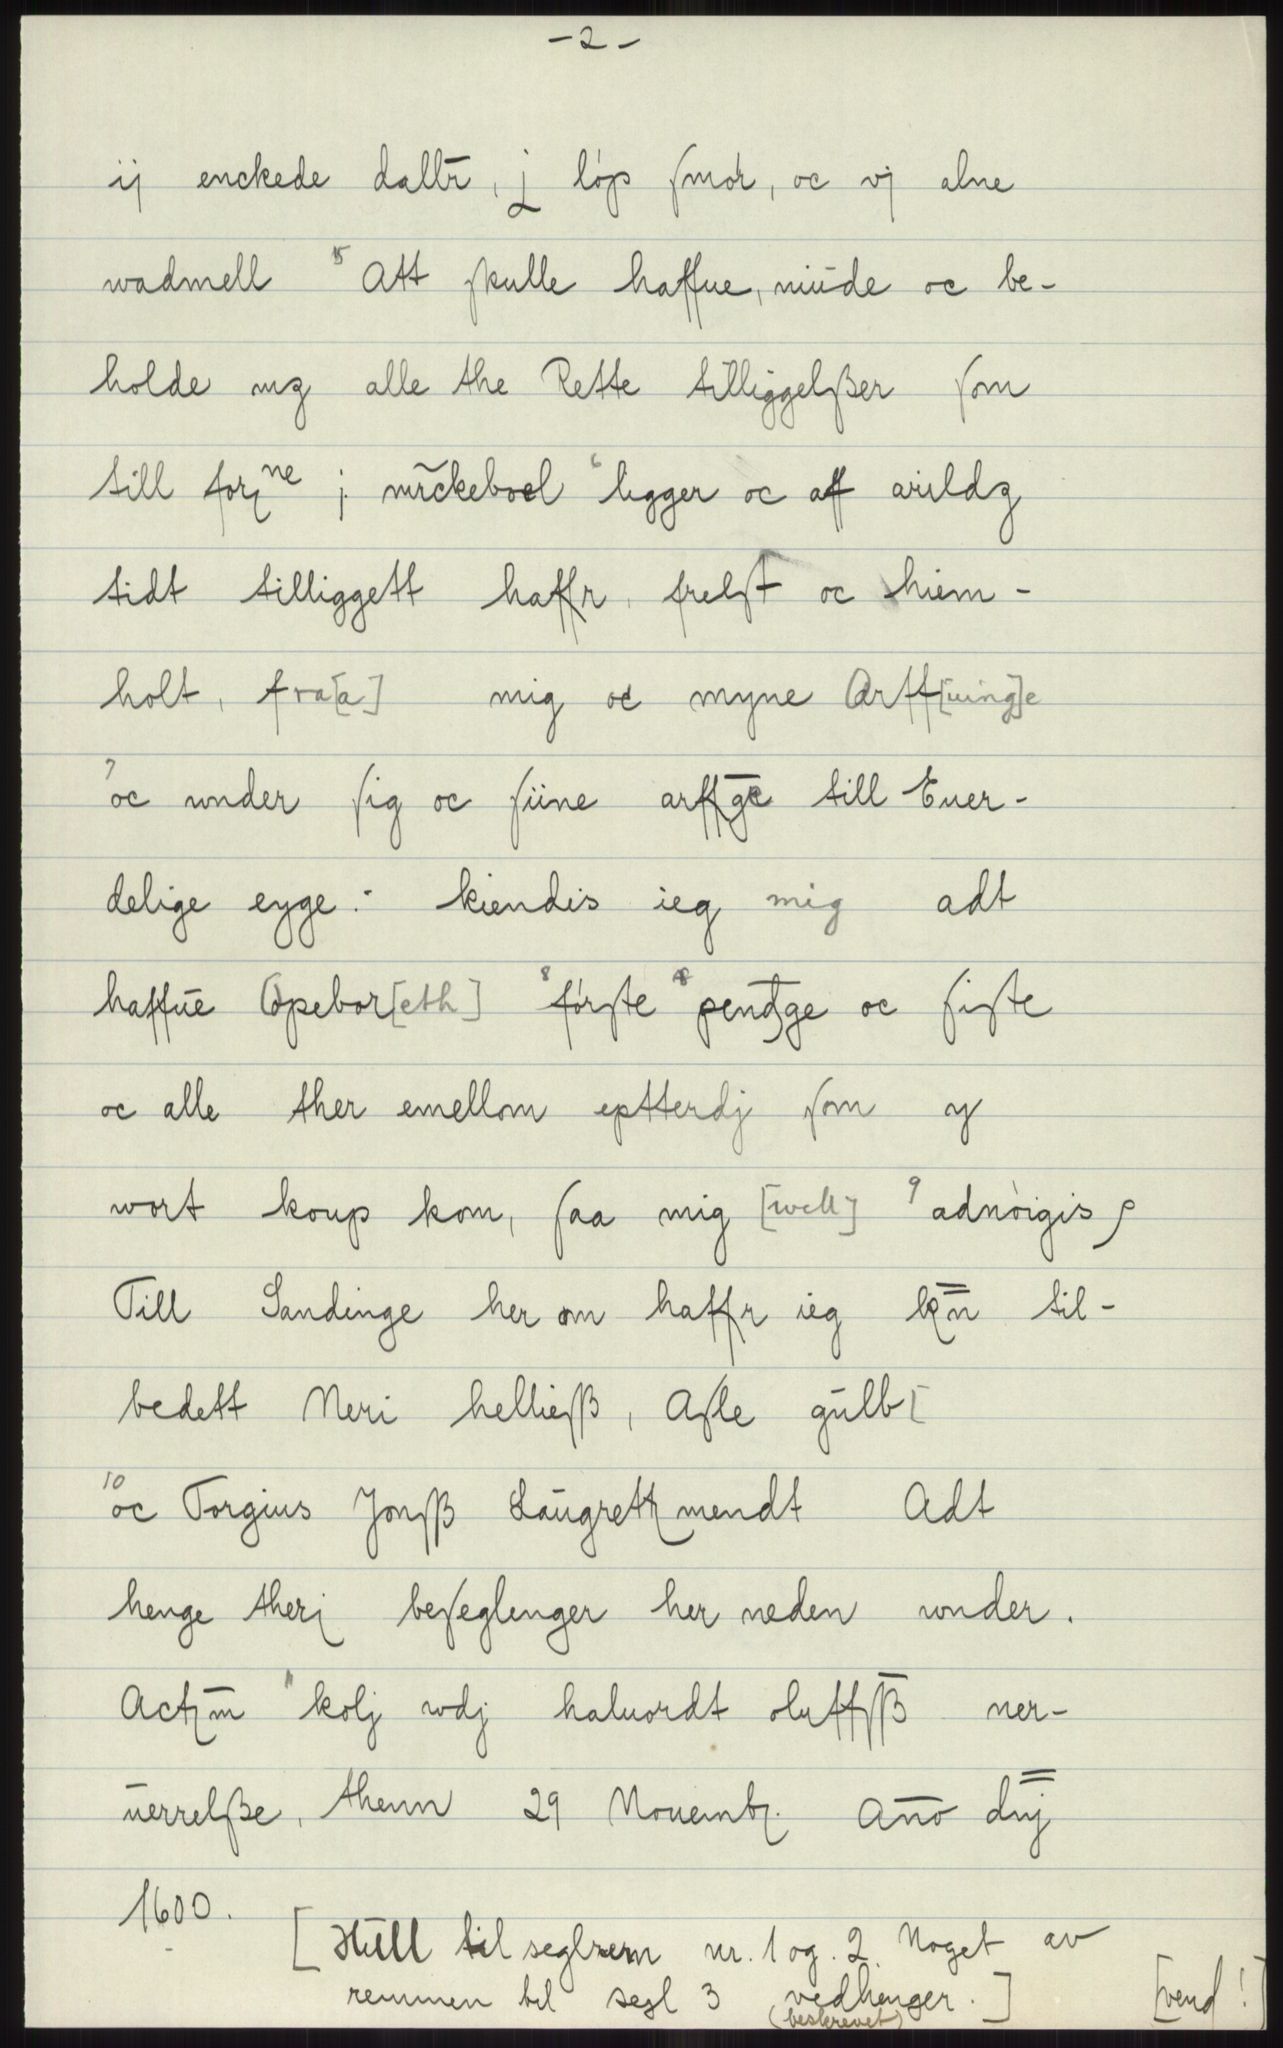 - 2 -
ij enckede dallr̄, j løp smør, oc vj alne
wadmell ⁵ Att skulle haffue, niude oc be-
holde mz alle the Rette tilliggelßer som
till forne j mr̄ckeboel ⁶ ligger oc aff arildz
tidt tilliggett haffr, frelst oc hiem-
holt, fra[a] mig oc myne Arff[uing]e
⁷ oc wnder sig oc siine arffḡe till Euer-
delige eyge: kiendis ieg mig adt
haffūe Opebor[eth] ⁸ første pendge oc siste
oc alle ther emellom eptterdj som y
wort koup kom, saa mig [well] ⁹ adnøigis
Till Sandinge her om haffr ieg kn̄ til-
bedett Neri helließ, Asle gulb[
¹⁰ oc Torgius Jonsß Laugrettz mendt Adt
henge ther besegelenger her neden wnder.
Actm̄ ¹¹ kolj wdj haluordt oluffsß ner-
uerrelße, thenn 29 Nouemb. Ano dnj
1600.
[Hull til seglrem nr. 1 og. 2. Noget av
remmen til segl 3 vedhenger.]
(beskrevet)
[vend!]